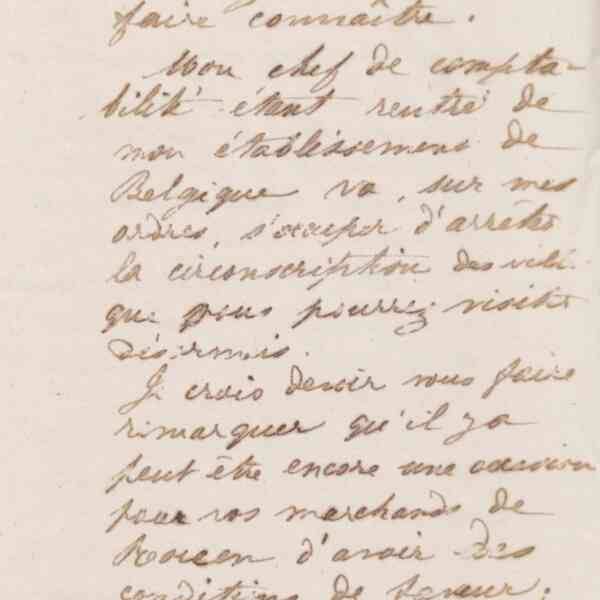 faire connaître.
Mon chef de compta-
bilité étant rentré de
mon établissement de
Belgique va, sur mes
ordres, s'occuper d'arrêter
la circonscription des vill
que vous pourrez visiter
désormais.
Je crois devoir vous faire
remarquer qu'il y a
peut être encore une occasion
pour vos marchands de
Rouen d'avoir des
conditions de faveur.